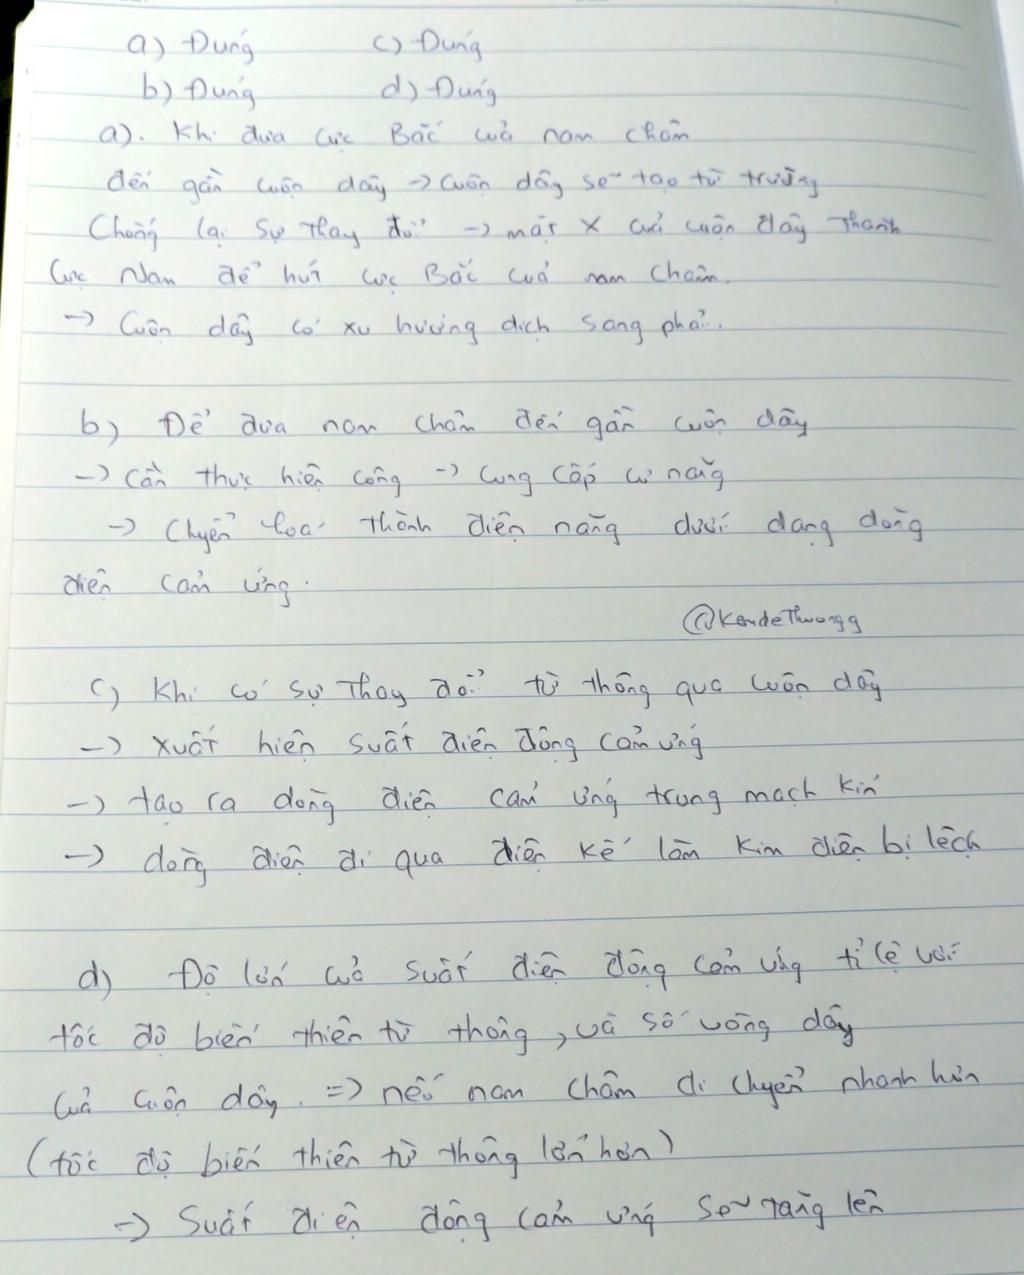 a) Đúng c) Đúng
b) Đúng d) Đúng
a). Khi đưa cực Bắc của nam châm
đến gần cuộn dây -> Cuộn dây sẽ tạo từ trường
Chống lại sự thay đổi -> mặt X của cuộn dây thành
Cực Nam để hút cực Bắc của nam châm.
-> Cuộn dây có xu hướng dịch sang phải.
b) Để đưa nam châm đến gần cuộn dây
-> Cần thực hiện công -> Cung cấp cơ năng
-> Chuyển hoá thành điện năng dưới dạng dòng
điện cảm ứng.
@KendeThuongg
c) Khi có sự thay đổi từ thông qua cuộn dây
-> xuất hiện suất điện động cảm ứng
-> tạo ra dòng điện cảm ứng trong mạch kín
-> dòng điện đi qua điện kế làm kim điện bị lệch
d) Độ lớn của suất điện động cảm ứng tỉ lệ với
tốc độ biến thiên từ thông, và số vòng dây
của cuộn dây. => nếu nam châm di chuyển nhanh hơn
(tốc độ biến thiên từ thông lớn hơn)
-> Suất điện động cảm ứng sẽ tăng lên